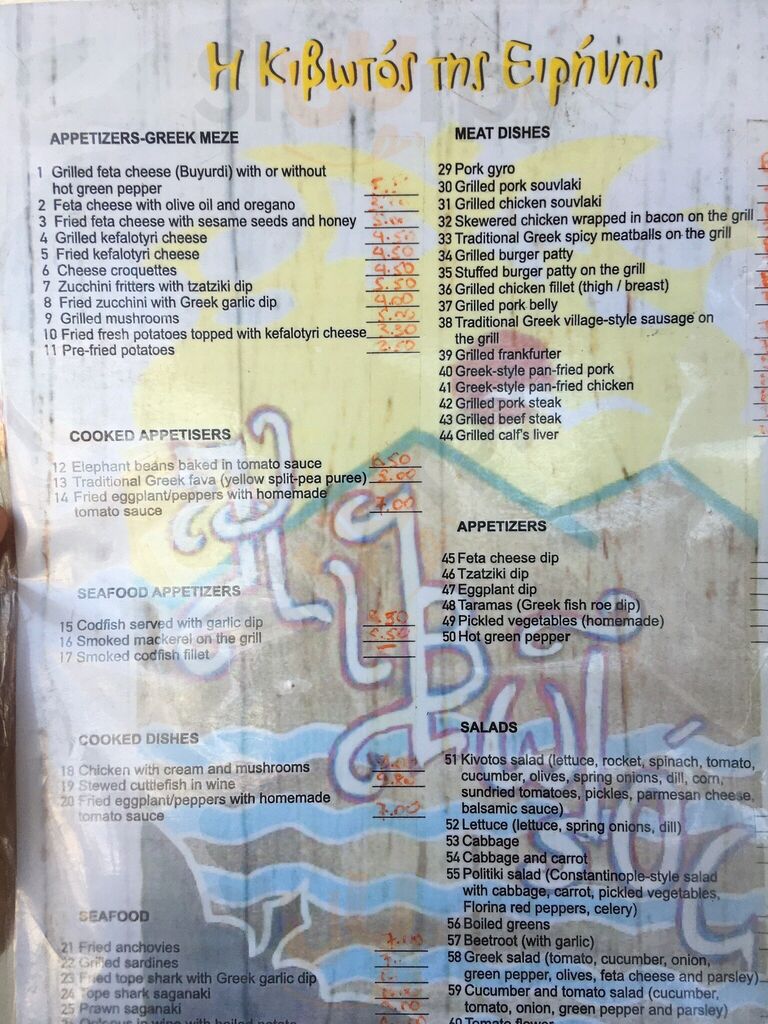 Η Κιβωτός της Ειρήνης
APPETIZERS-GREEK MEZE
1 Grilled feta cheese (Buyurdi) with or without
hot green pepper
2 Feta cheese with olive oil and oregano
3 Fried feta cheese with sesame seeds and honey
4 Grilled kefalotyri cheese 4.50
5 Fried kefalotyri cheese 4.50
6 Cheese croquettes 4.50
7 Zucchini fritters with tzatziki dip 5.50
8 Fried zucchini with Greek garlic dip 4.00
9 Grilled mushrooms 5.00
10 Fried fresh potatoes topped with kefalotyri cheese 3.30
11 Pre-fried potatoes 2.50
COOKED APPETISERS
12 Elephant beans baked in tomato sauce 6.50
13 Traditional Greek fava (yellow split-pea puree) 5.00
14 Fried eggplant/peppers with homemade
tomato sauce 7.00
SEAFOOD APPETIZERS
15 Codfish served with garlic dip
16 Smoked mackerel on the grill 5.50
17 Smoked codfish fillet
COOKED DISHES
18 Chicken with cream and mushrooms
19 Stewed cuttlefish in wine 9.80
20 Fried eggplant/peppers with homemade
tomato sauce 7.00
SEAFOOD
21 Fried anchovies
22 Grilled sardines
23 Fried tope shark with Greek garlic dip
24 Tope shark saganaki
25 Prawn saganaki
26 Octopus in wine with boiled potato
MEAT DISHES
29 Pork gyro
30 Grilled pork souvlaki
31 Grilled chicken souvlaki
32 Skewered chicken wrapped in bacon on the grill
33 Traditional Greek spicy meatballs on the grill
34 Grilled burger patty
35 Stuffed burger patty on the grill
36 Grilled chicken fillet (thigh / breast)
37 Grilled pork belly
38 Traditional Greek village-style sausage on
the grill
39 Grilled frankfurter
40 Greek-style pan-fried pork
41 Greek-style pan-fried chicken
42 Grilled pork steak
43 Grilled beef steak
44 Grilled calf's liver
APPETIZERS
45 Feta cheese dip
46 Tzatziki dip
47 Eggplant dip
48 Taramas (Greek fish roe dip)
49 Pickled vegetables (homemade)
50 Hot green pepper
SALADS
51 Kivotos salad (lettuce, rocket, spinach, tomato,
cucumber, olives, spring onions, dill, corn,
sundried tomatoes, pickles, parmesan cheese,
balsamic sauce)
52 Lettuce (lettuce, spring onions, dill)
53 Cabbage
54 Cabbage and carrot
55 Politiki salad (Constantinople-style salad
with cabbage, carrot, pickled vegetables,
Florina red peppers, celery)
56 Boiled greens
57 Beetroot (with garlic)
58 Greek salad (tomato, cucumber, onion,
green pepper, olives, feta cheese and parsley)
59 Cucumber and tomato salad (cucumber,
tomato, onion, green pepper and parsley)
60 Tomato flower